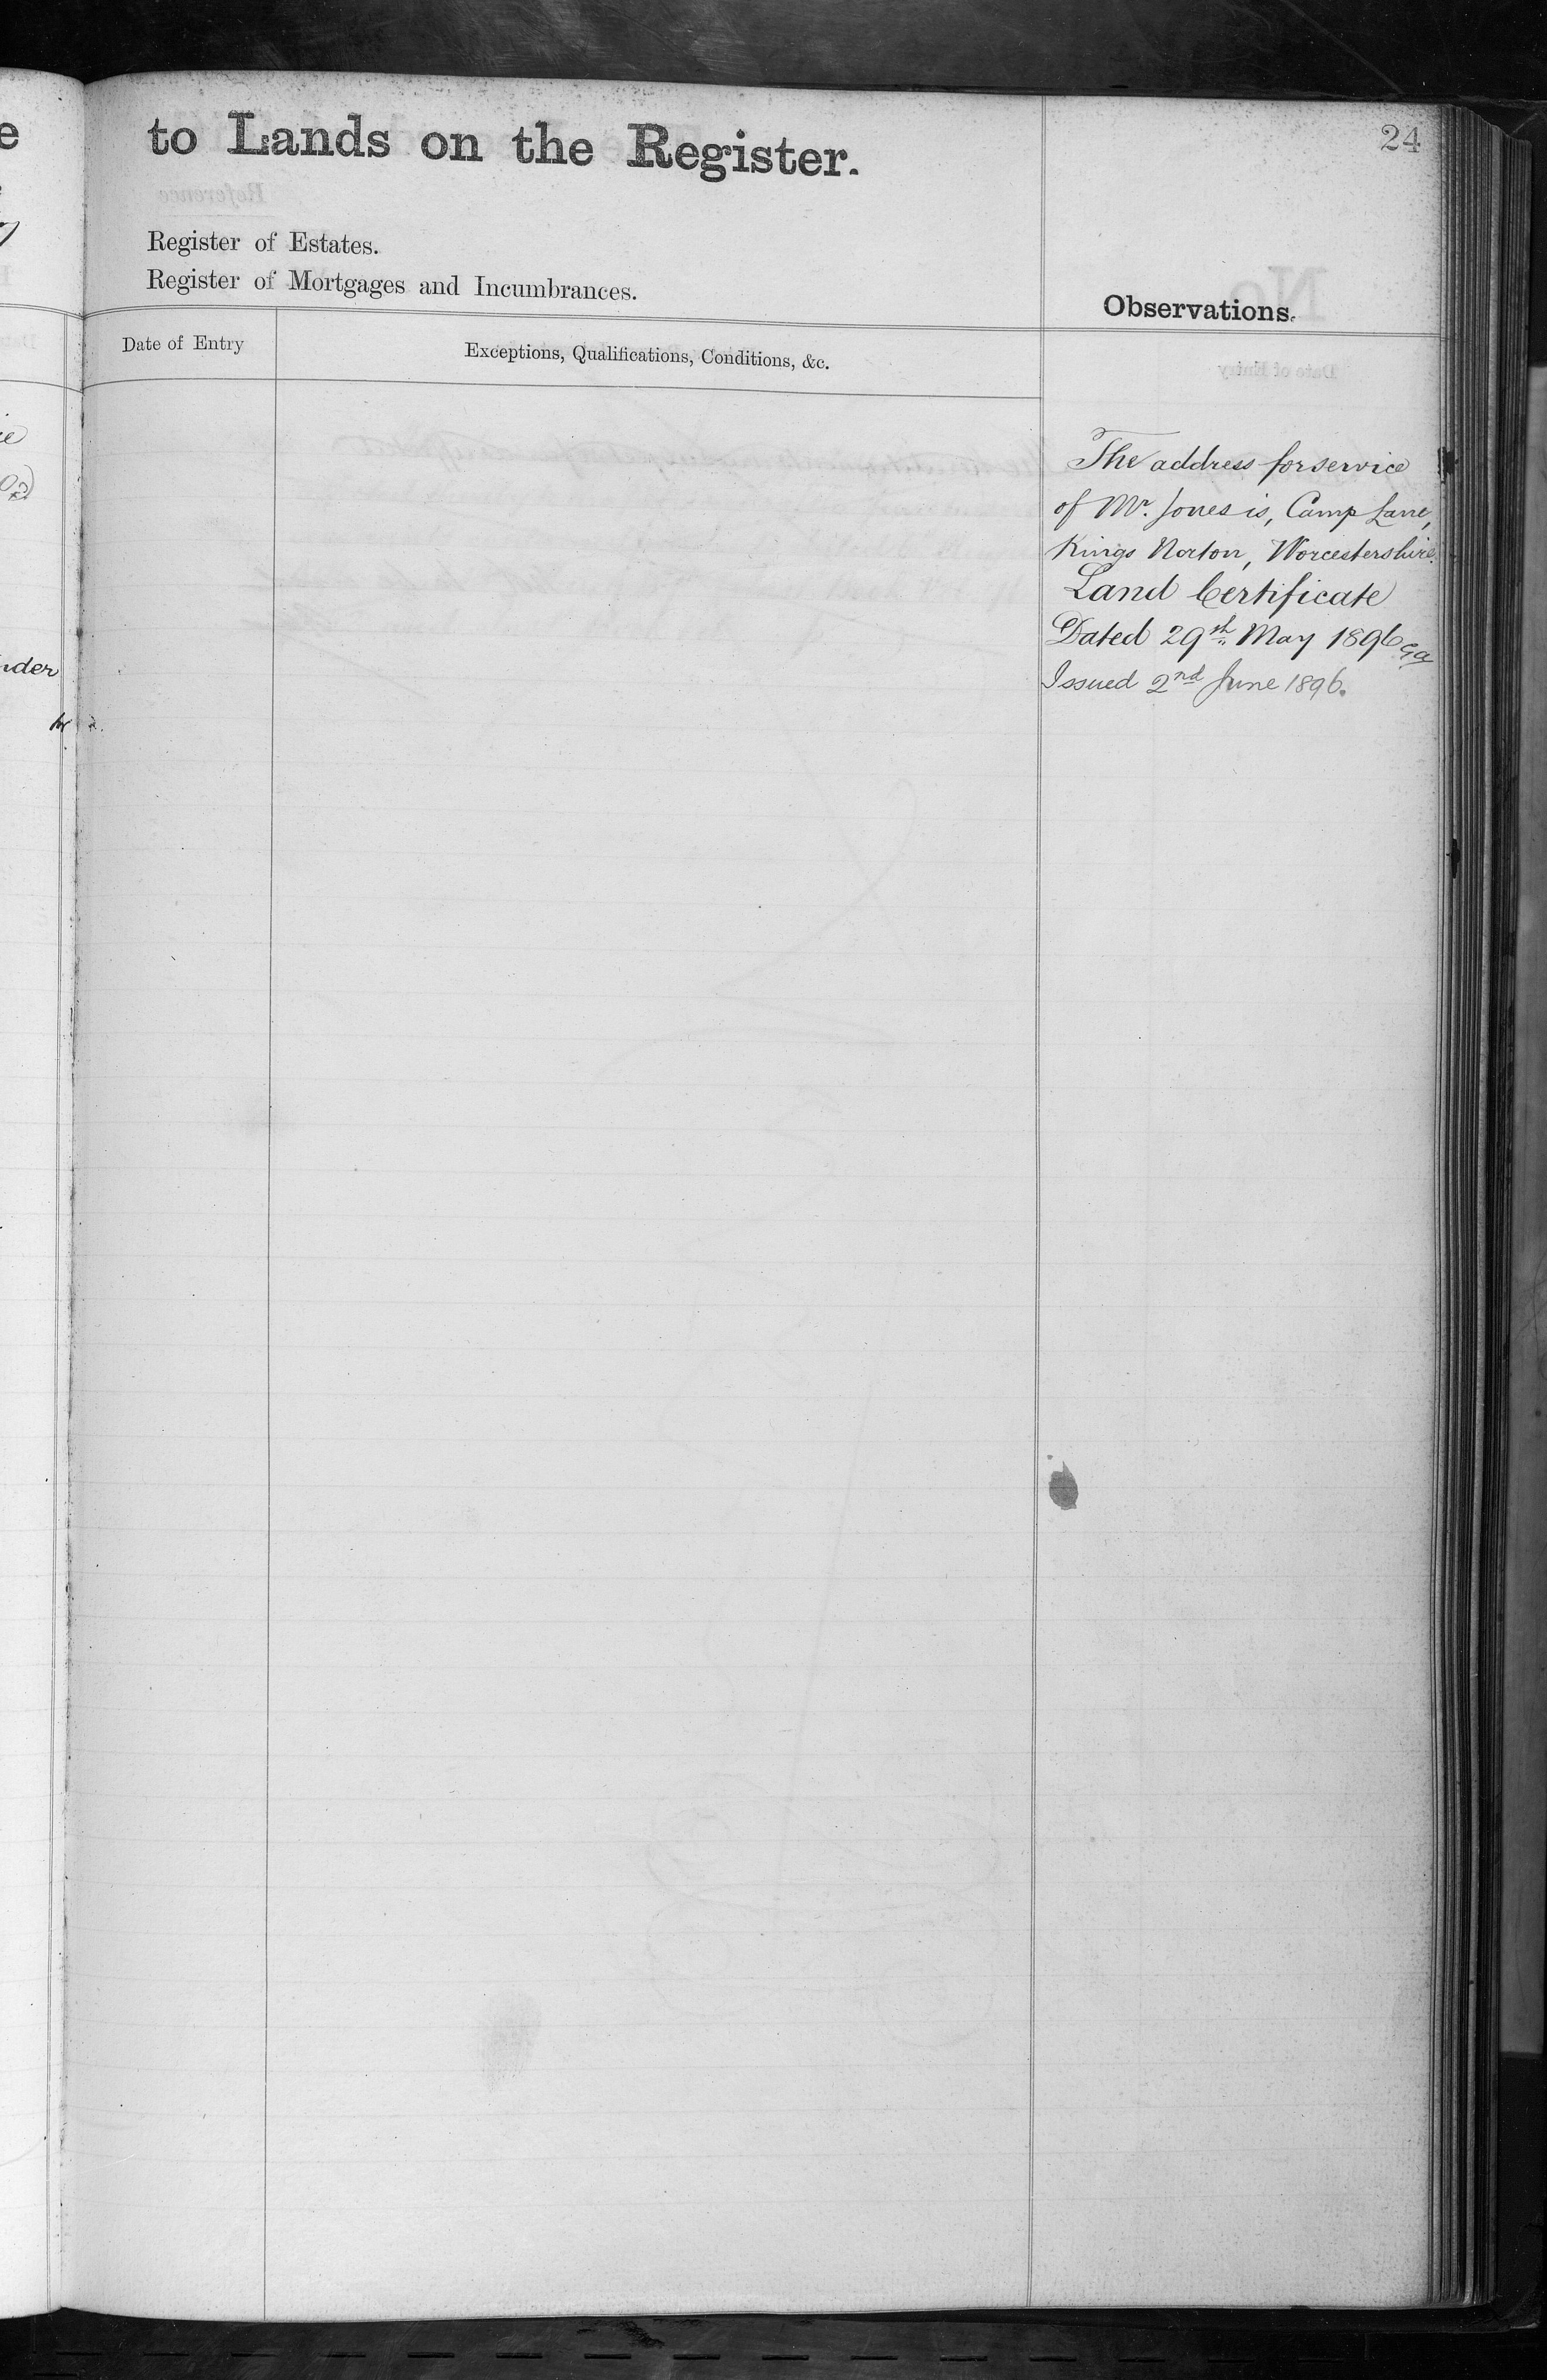 24
to Lands on the Register.
Register of Estates.
Register of Mortgages and Incumbrances.
Observations.
Date of Entry
Exceptions, Qualifications, Conditions, &c.
The address for service
of Mr. Jones is, Camp Lane,
Kings Norton, Worcestershire.
Land Certificate
Dated 29th May 1896
Issued 2nd June 1896.
nder